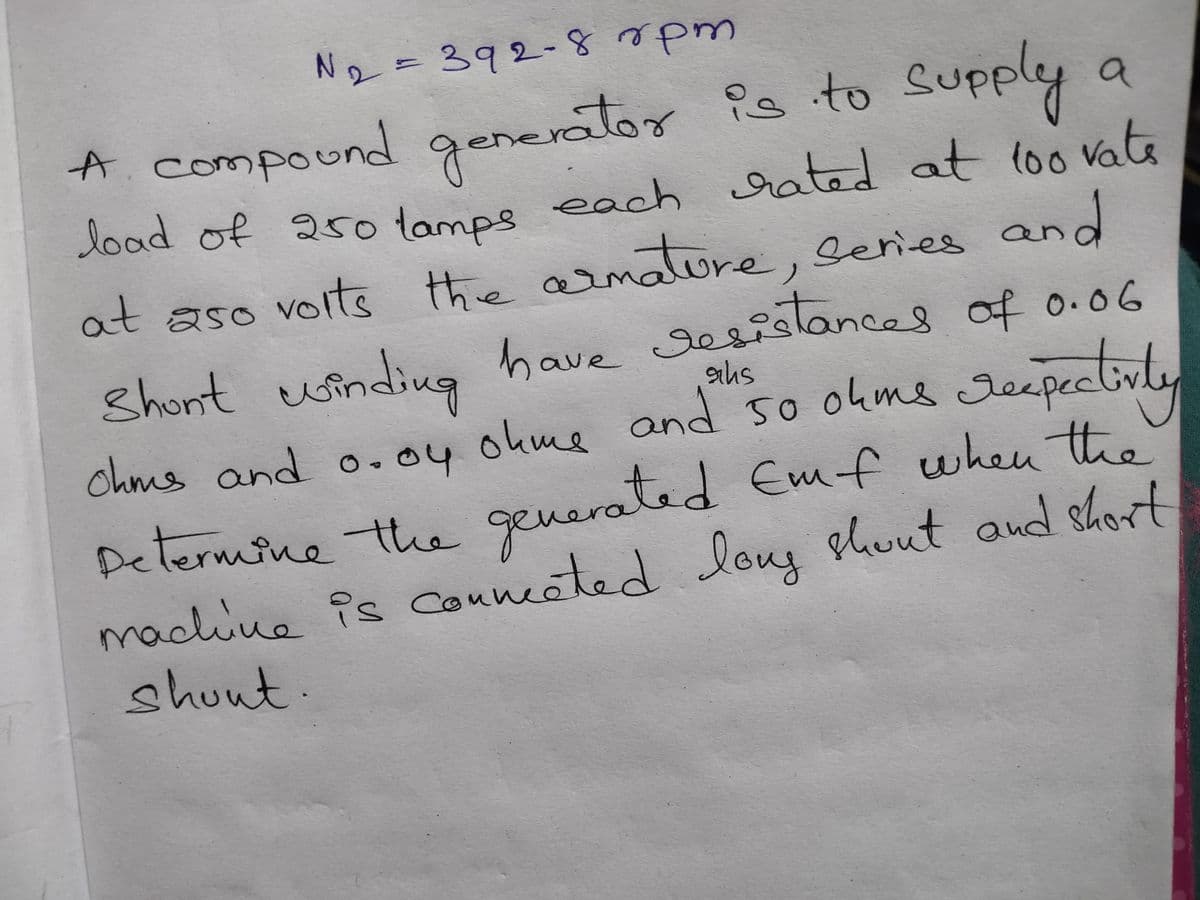 N2 = 392-8 rpm
A compound generator is to supply a
load of 250 lamps each rated at 100 vats
at 250 volts the armature, series and
Shunt winding have resistances of 0.06
ohms and 0.04 ohms and 50 ohms reepectivly
Determine the generated Emf when the
machine is connected long shunt and short
shunt.